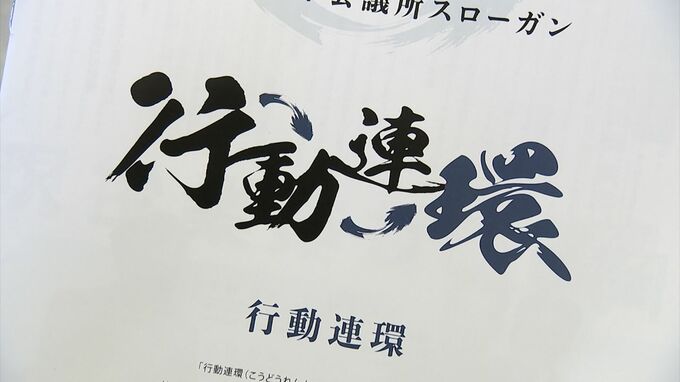 会議所スローガン
行動連環
行動連環
「行動連環（こうどうれん